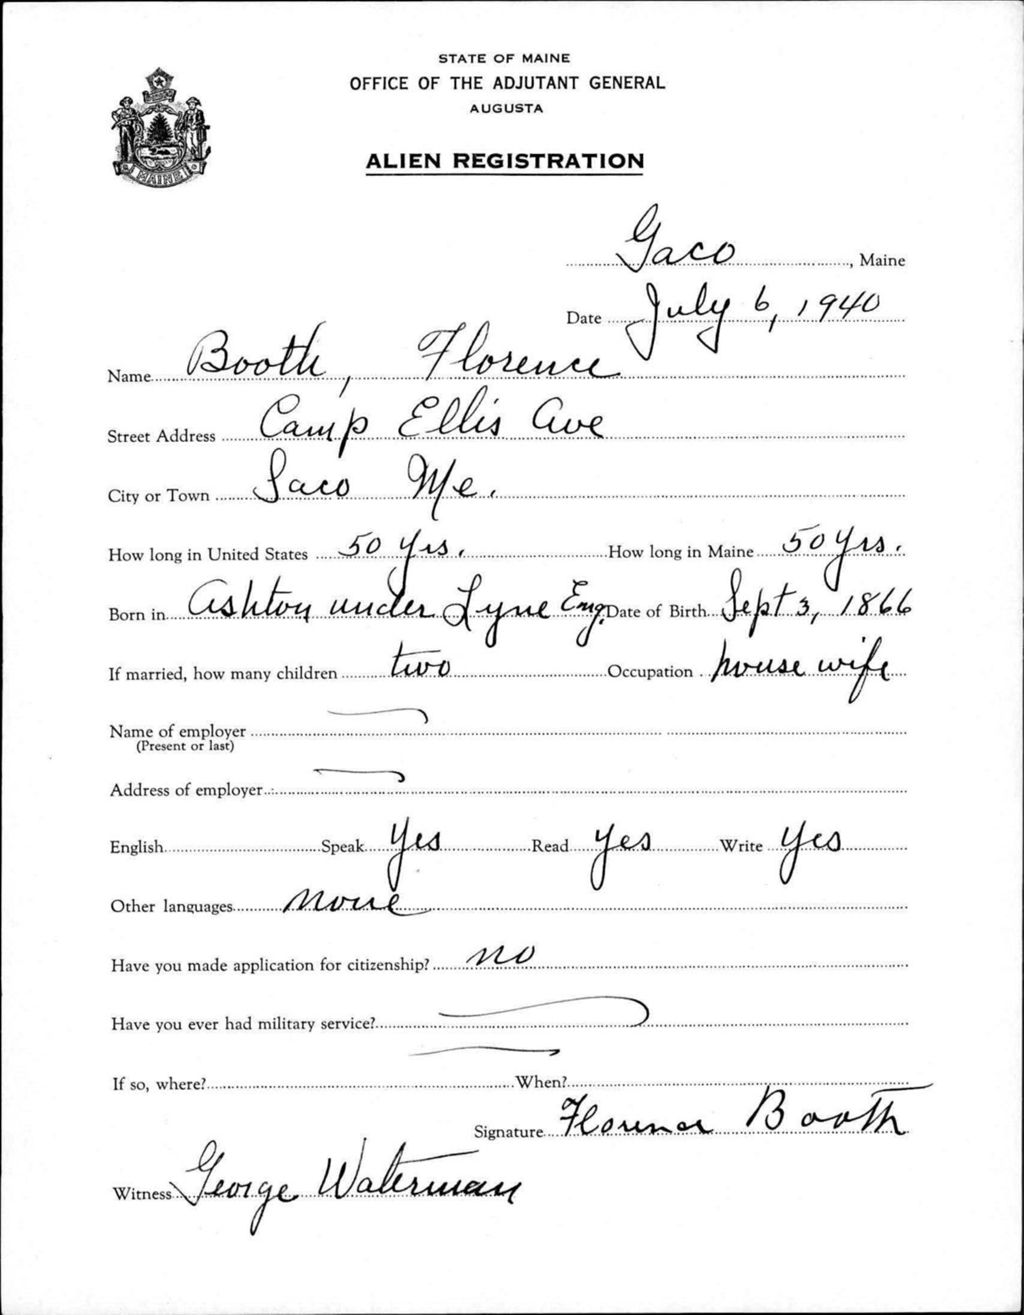 STATE OF MAINE
OFFICE OF THE ADJUTANT GENERAL
AUGUSTA
MAINE
ALIEN REGISTRATION
Saco, Maine
Date July 6, 1940
Name Booth, Florence
Street Address Camp Ellis Ave
City or Town Saco Me.
How long in United States 50 yrs. How long in Maine 50 yrs.
Born in Ashton under Lyne Eng. Date of Birth Sept 3, 1866
If married, how many children two Occupation house wife
Name of employer
(Present or last)
Address of employer
English Speak Yes Read Yes Write Yes
Other languages None
Have you made application for citizenship? no
Have you ever had military service?
If so, where? When?
Signature Florence Booth
Witness George Waterman